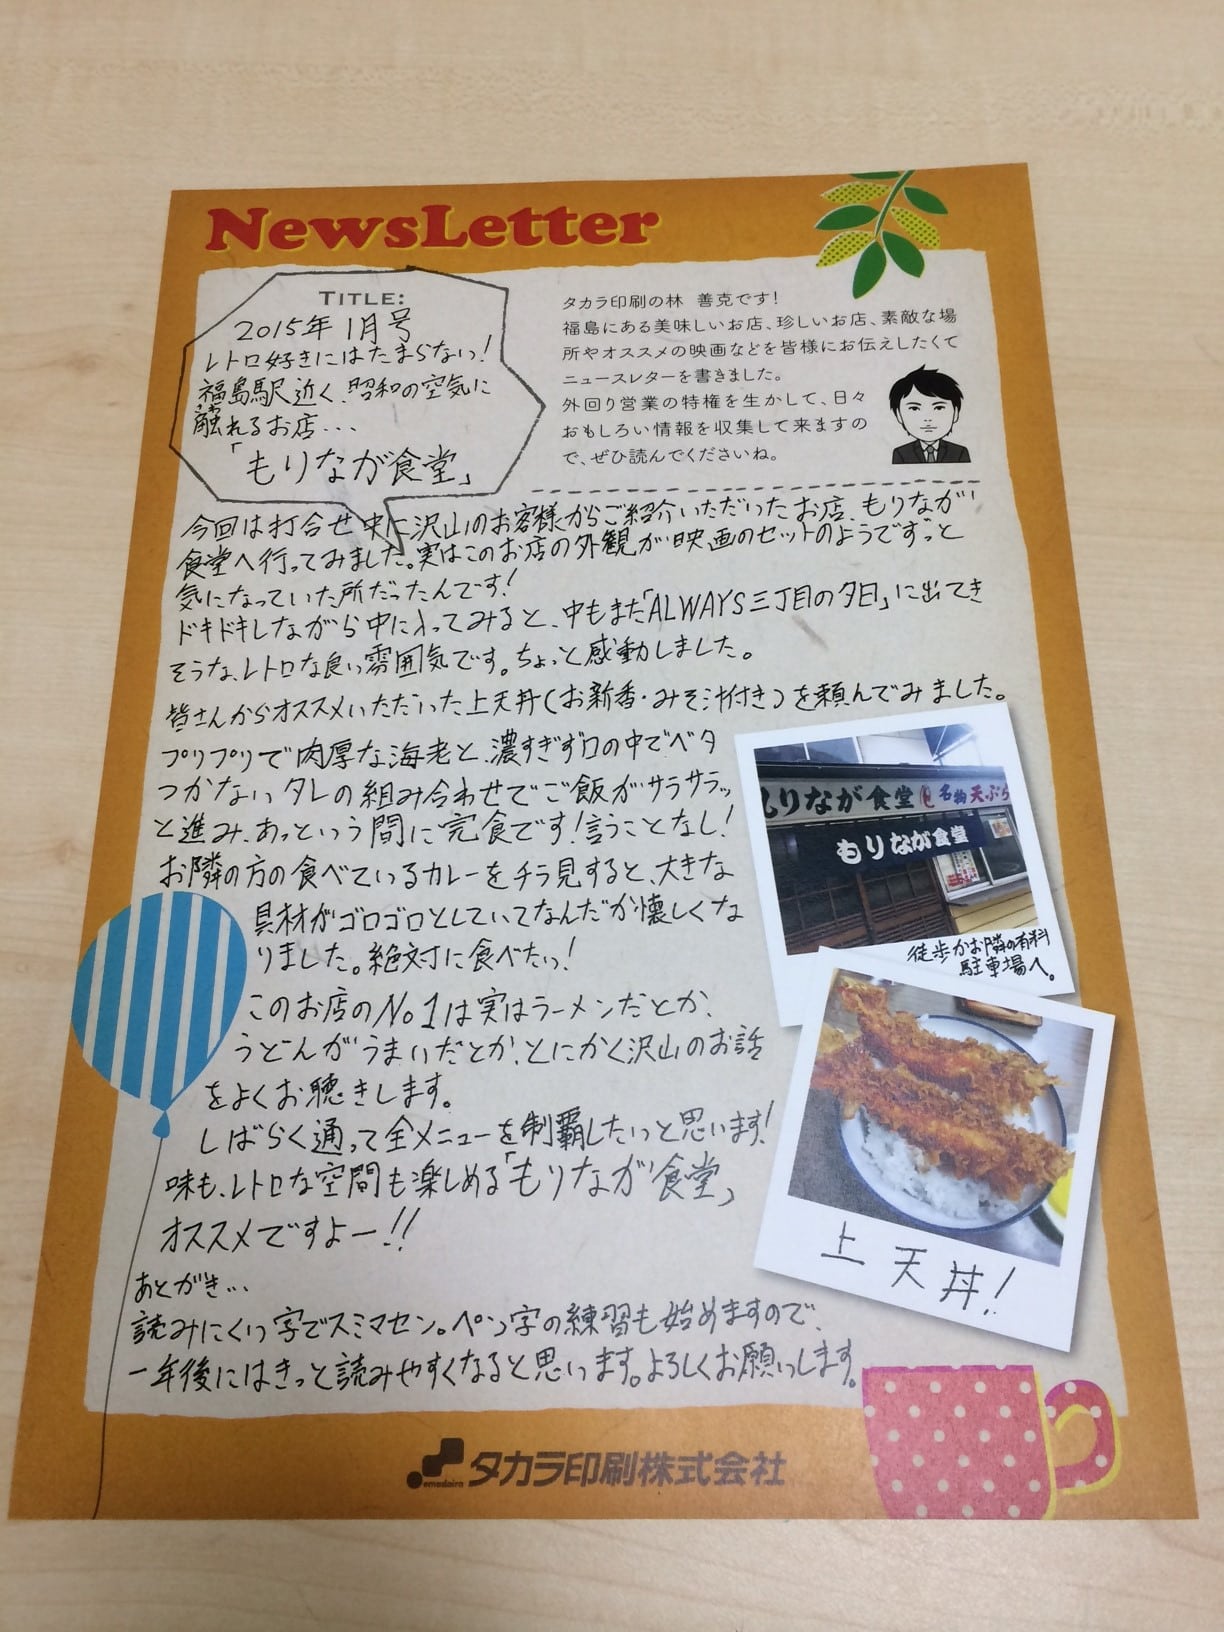 NewsLetter
TITLE:
2015年 1月号
レトロ好きにはたまらないっ!
福島駅近く、昭和の空気に
触れるお店・・・
「もりなが食堂」
タカラ印刷の林 善克です!
福島にある美味しいお店、珍しいお店、素敵な場
所やオススメの映画などを皆様にお伝えしたくて
ニュースレターを書きました。
外回り営業の特権を生かして、日々
おもしろい情報を収集して来ますの
で、ぜひ読んでくださいね。
今回は打合せ中に沢山のお客様からご紹介いただいたお店、もりなが
食堂へ行ってみました。実はこのお店の外観が映画のセットのようでずっと
気になっていた所だったんです!
ドキドキしながら中に入ってみると、中もまた「ALWAYS三丁目の夕日」に出てき
そうな、レトロな良い雰囲気です。ちょっと感動しました。
皆さんからオススメいただいた上天丼(お新香・みそ汁付き)を頼んでみました。
プリプリで肉厚な海老と、濃すぎず口の中でベタ
つかないタレの組み合わせでご飯がサラサラッ
と進み、あっという間に完食です!言うことなし!
お隣の方の食べているカレーをチラ見すると、大きな
具材がゴロゴロとしていてなんだか懐しくな
りました。絶対に食べたい!
このお店のNo.1は実はラーメンだとか、
うどんがうまいだとか、とにかく沢山のお話
をよくお聴きします。
しばらく通って全メニューを制覇したいっと思います!
味も、レトロな空間も楽しめる「もりなが食堂」
オススメですよー!!
もりなが食堂 名物天ぷら
もりなが食堂
徒歩かお隣の有料
駐車場へ。
上天丼!
あとがき・・・
読みにくい字でスミマセン。ペン字の練習も始めますので、
一年後にはきっと読みやすくなると思います。よろしくお願いします。
emadoira
タカラ印刷株式会社